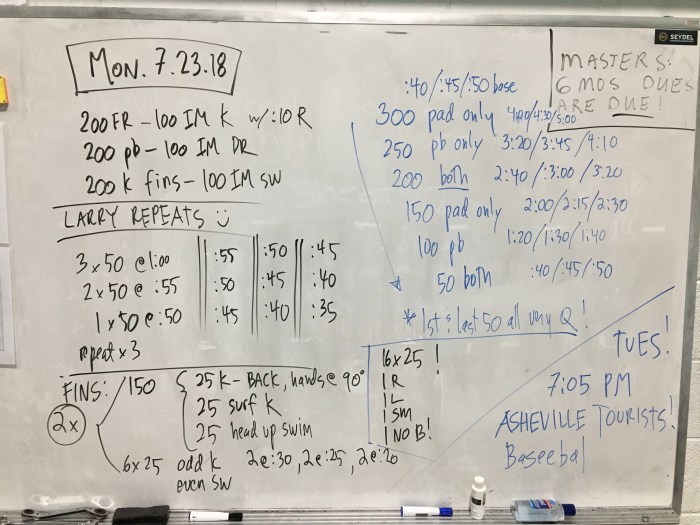 MON. 7.23.18
200 FR - 100 IM K w/ :10 R
200 pb - 100 IM DR
200 k fins - 100 IM SW
LARRY REPEATS
3 x 50 @ 1:00 :55 :50 :45
2 x 50 @ :55 :50 :45 :40
1 x 50 @ :50 :45 :40 :35
repeat x 3
FINS: 150 25 K - BACK, hands @ 90°
2x 25 surf K
25 head up swim
6x25 odd k 2@:30, 2@:25, 2@:20
even sw
:40/:45/:50 base
300 pad only 4:00/4:30/5:00
250 pb only 3:20/3:45/4:10
200 both 2:40/:3:00/3:20
150 pad only 2:00/2:15/2:30
100 pb 1:20/1:30/1:40
50 both :40/:45/:50
* 1st & last 50 all very Q!
16x25!
1 R
1 L
1 SM
1 NO B!
SEYDEL
MASTERS:
6 MOS DUES
ARE DUE!
TUES!
7:05 PM
ASHEVILLE TOURISTS!
Baseebal